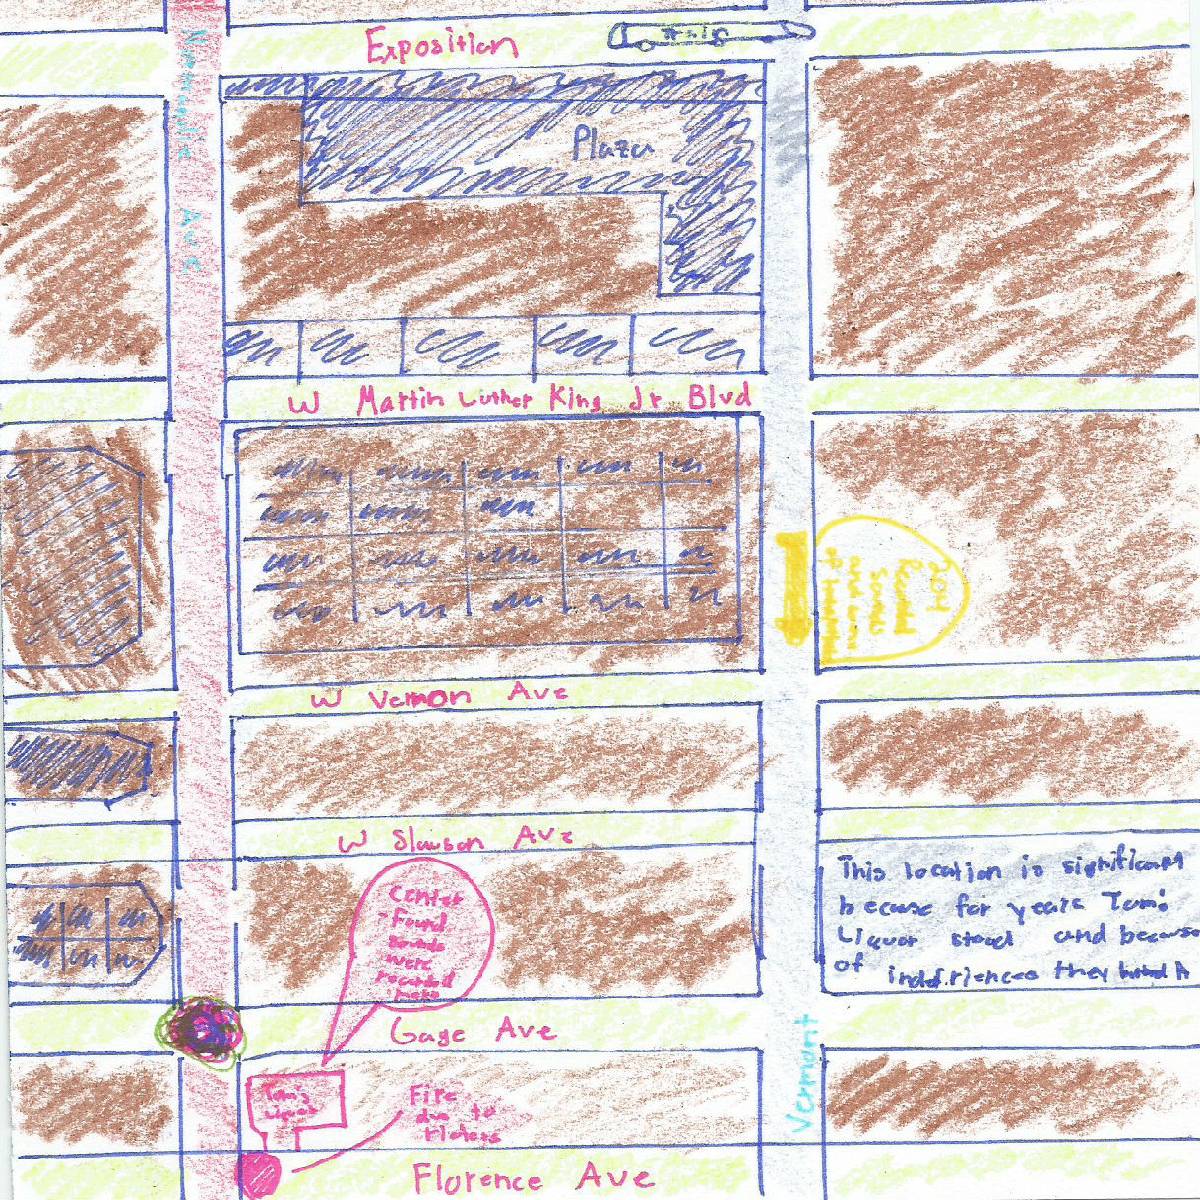 Exposition
Plaza
Normandie Ave
W Martin Luther King Jr Blvd
204
Recorded
Sounds
W Vernon Ave
W Slauson Ave
Center
Found
Sounds
were
recorded
here
This location is significant
because for years Tom's
Liquor stood and because
of indiferences they
Gage Ave
Vermont
Tom's
Liquor
Fire
due to
Florence Ave